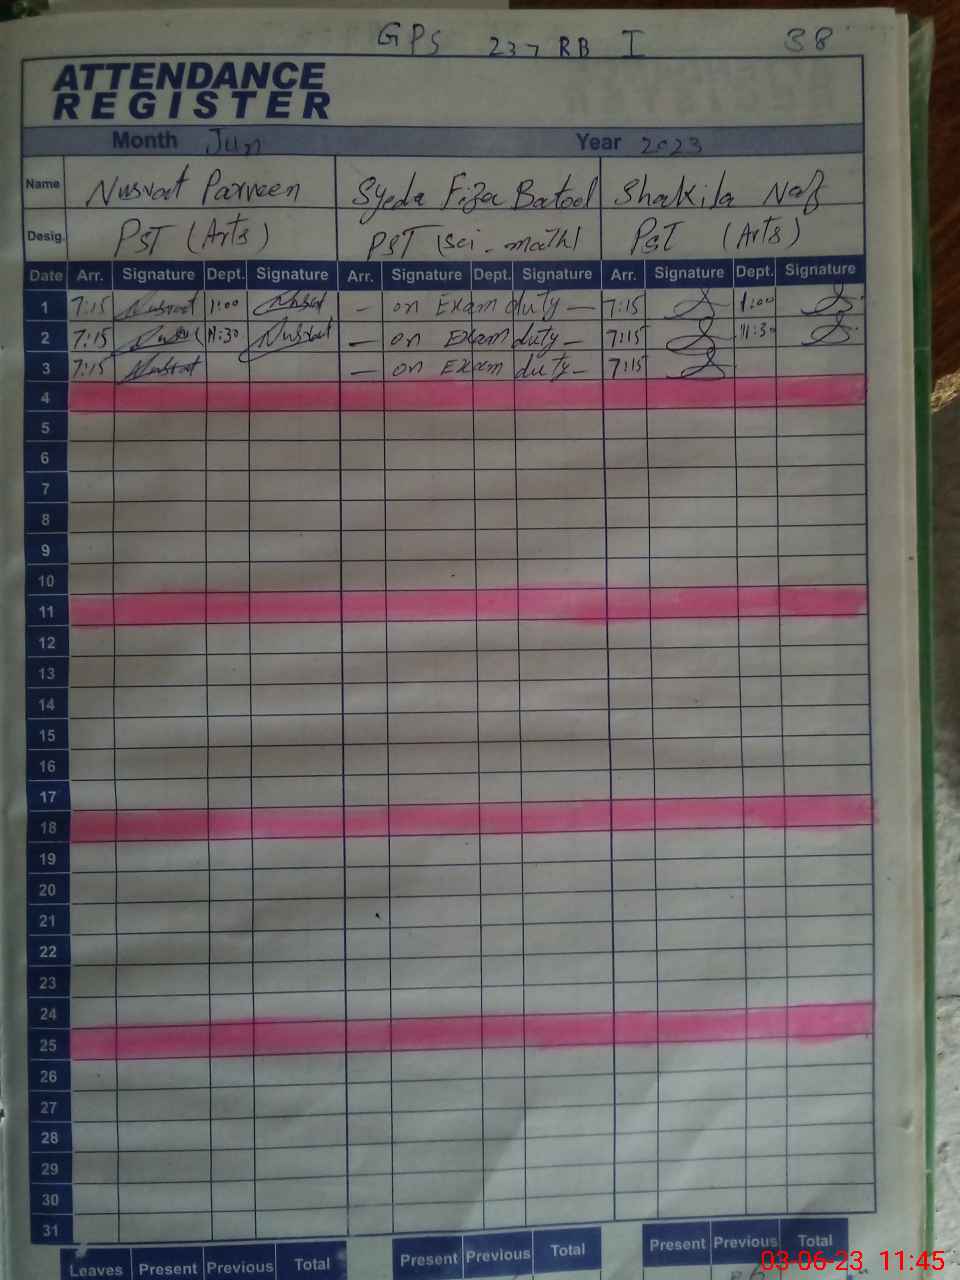 GPS 237 RB I 38
ATTENDANCE
REGISTER
Month Jun Year 2023
Name Nusrat Parveen Syeda Fiza Batool Shakila Naz
Desig. PST (Arts) PST (Sci-math) PST (Arts)
Date Arr. Signature Dept. Signature Arr. Signature Dept. Signature Arr. Signature Dept. Signature
1 7:15 Nusrat 1:00 Nusrat — on Exam duty — 7:15 1:00
2 7:15 Nusrat 11:30 Nusrat — on Exam duty — 7:15 11:30
3 7:15 Nusrat — on Exam duty — 7:15
4
5
6
7
8
9
10
11
12
13
14
15
16
17
18
19
20
21
22
23
24
25
26
27
28
29
30
31
Leaves Present Previous Total Present Previous Total Present Previous Total
03-06-23 11:45